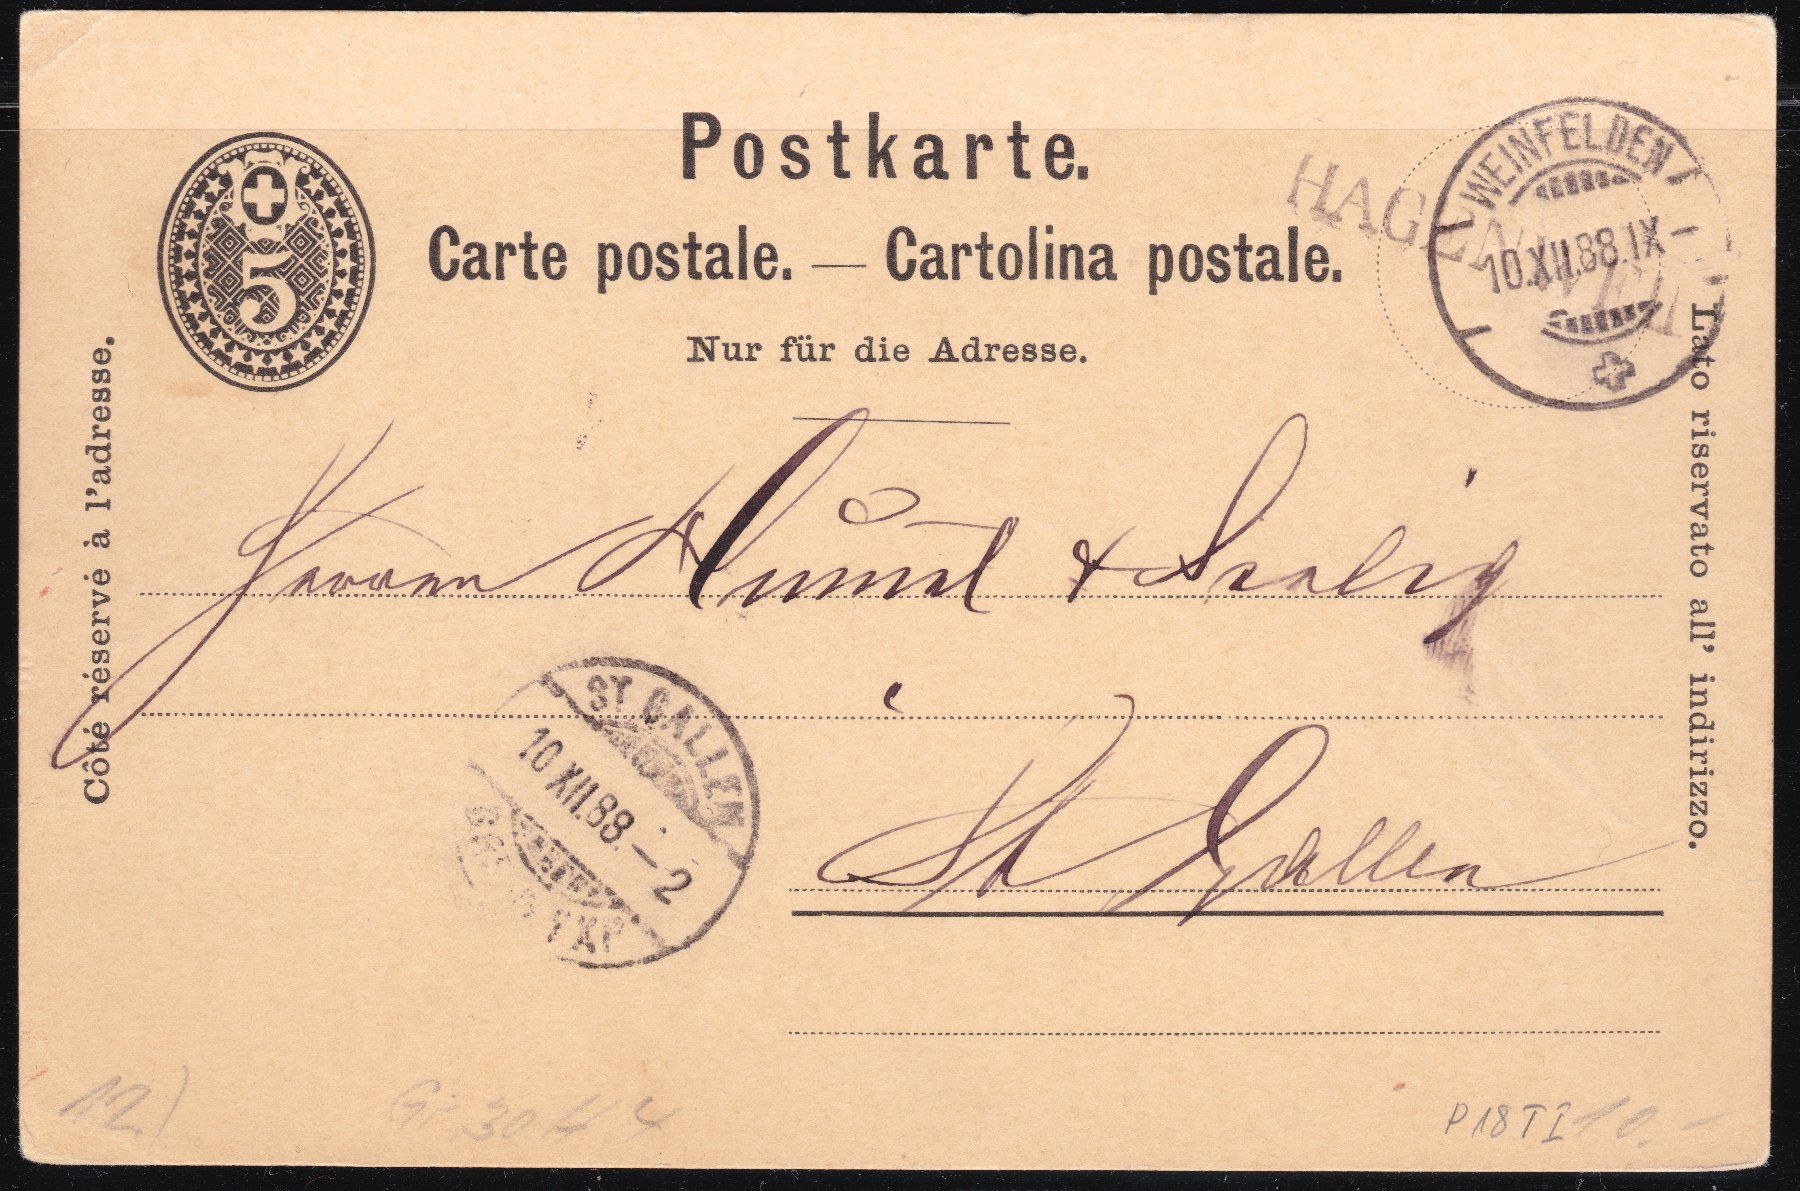 Postkarte.
Carte postale. — Cartolina postale.
Nur für die Adresse.
5
Côté réservé à l'adresse.
Lato riservato all' indirizzo.
HAGEN
WEINFELDEN
10.XII.88.IX-
Herren & Seelig
St. Gallen
ST. GALLEN
10.XII.88.-2
EXP.
12.)
Gr. 30 H 4
P 18 T I 10.-